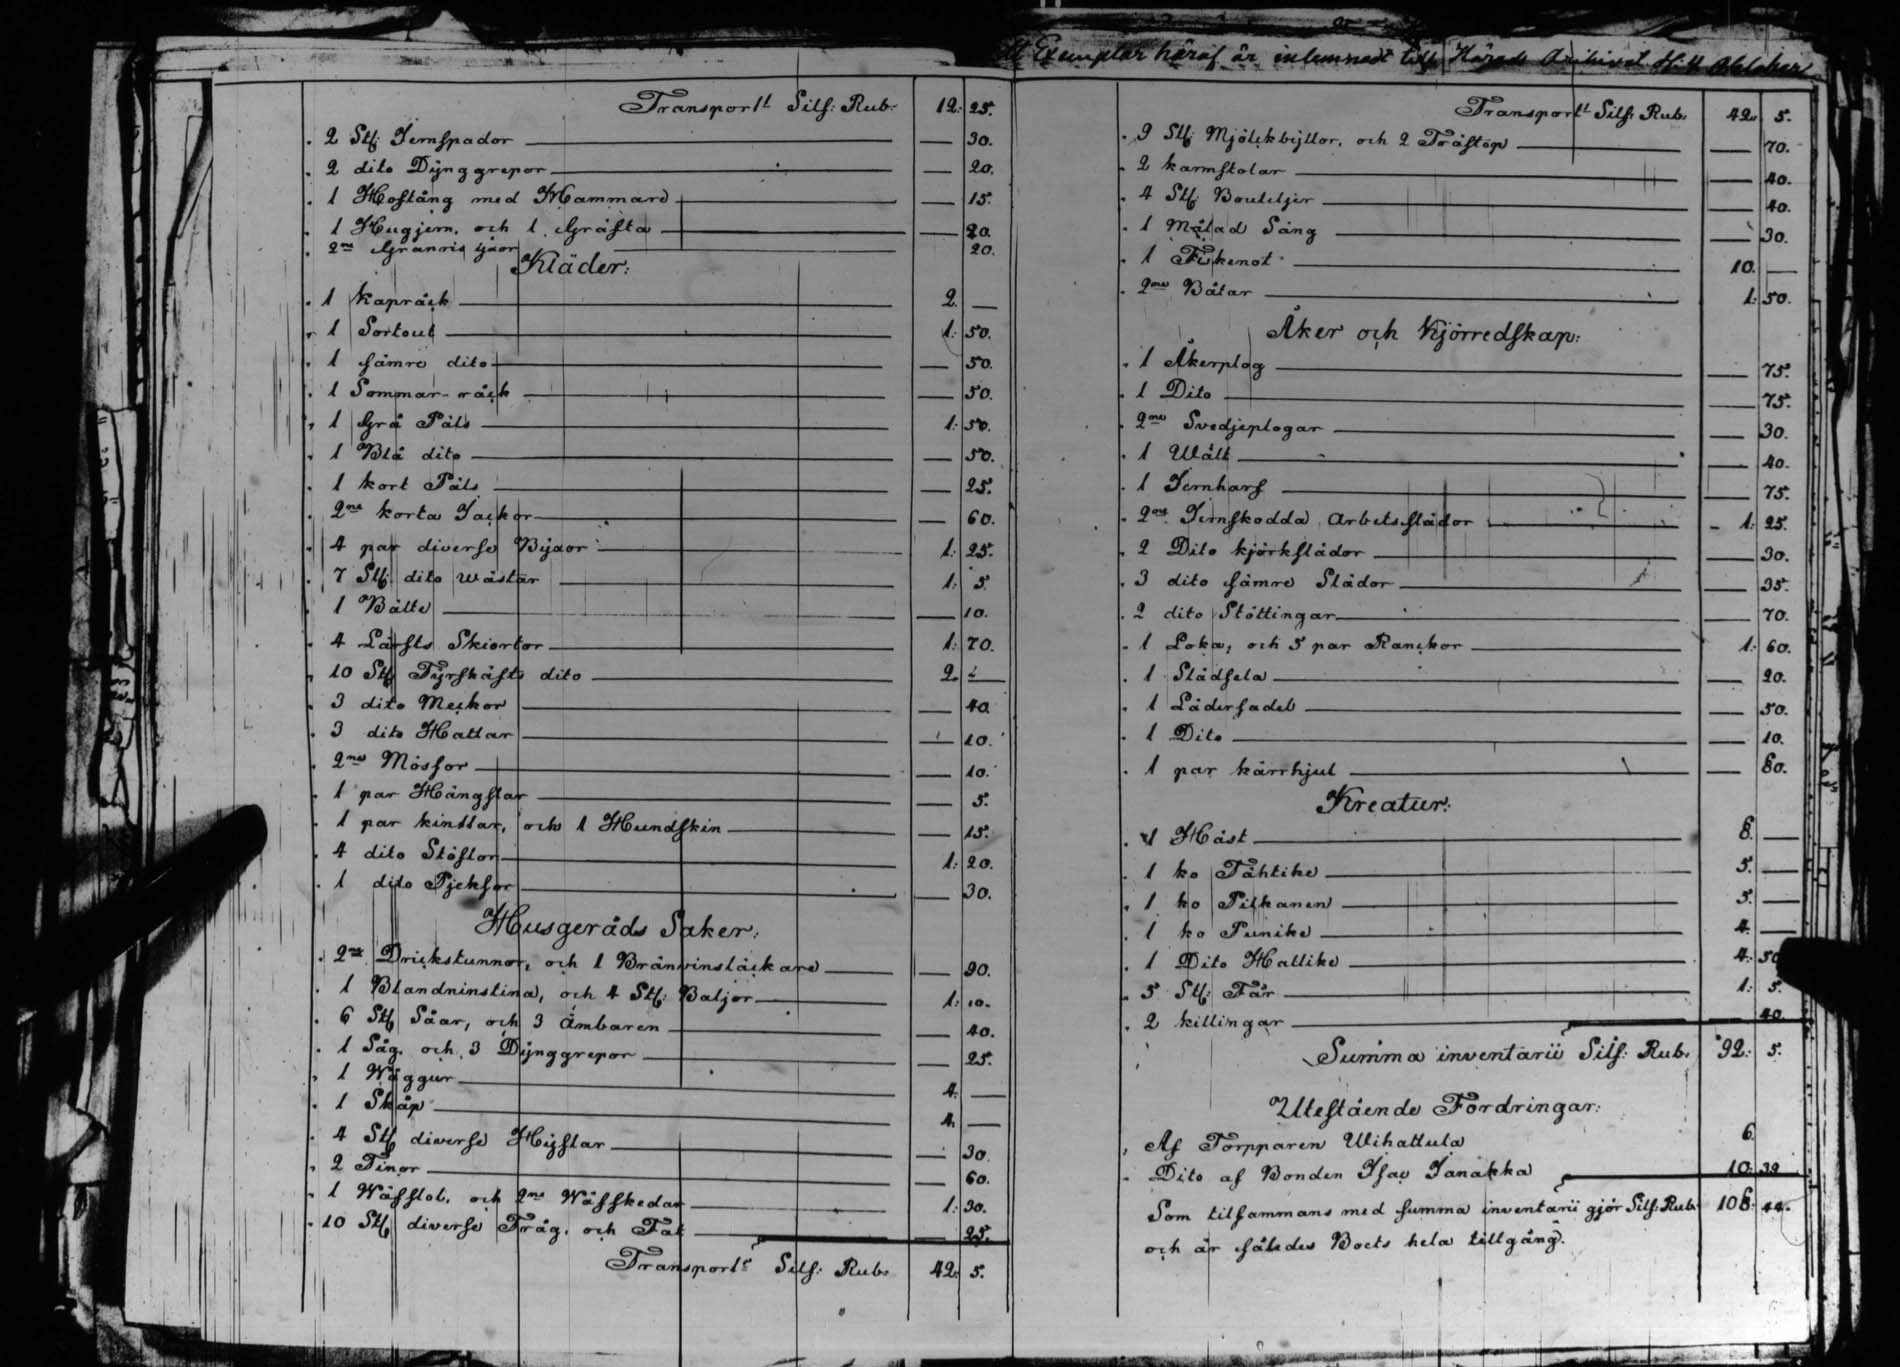 Transport Silf: Rub: 12: 25.
2 St: Jernspador — 30.
2 dito Dynggrepor — 20.
1 Hoftång med Hammare — 15.
1 Hugjern, och 1 Gräfta — 20.
2ne Granris yxor 20.
Kläder:
1 kapråck 2. —
1 Sortout 1: 50.
1 sämre dito — 50.
1 Sommar-råck — 50.
1 Grå Päls 1: 50.
1 Blå dito — 50.
1 kort Päls — 25.
2ne korta Jackor — 60.
4 par diverse Byxor 1: 25.
7 St: dito wästar 1: 5.
1 Bälte — 10.
4 Lärfts Skiortor 1: 70.
10 St: Fyrskäfts dito 2. —
3 dito Meckor — 40.
3 dito Hattar — 10.
2ne Mössor — 10.
1 par Hängslar — 5.
1 par kinttar, och 1 Hundskin — 15.
4 dito Stöflor 1: 20.
1 dito Pjeksor — 30.
Husgeråds Saker:
2ne Drickstunnor, och 1 Bränvinsläckare — 90.
1 Blandninstina, och 4 St: Baljor 1: 10.
6 St: Såar, och 3 Ämbaren — 40.
1 Såg, och 3 Dynggrepor — 25.
1 Wäggur 4. —
1 Skåp 4. —
4 St: diverse Hyflar — 30.
2 Tinor — 60.
1 Wäfstol, och 2ne Wäfskedar 1: 30.
10 St: diverse Tråg, och Fat — 25.
Transport Silf: Rub: 42: 5.
Exemplar häraf är inlemnadt till Härads Arkivet
Transport Silf: Rub: 42. 5.
9 St: Mjölckbyttor, och 2 Trästop — 70.
2 karmstolar — 40.
4 St: Bouteljer — 40.
1 Målad Säng — 30.
1 Fiskenot 10. —
2ne Båtar 1: 50.
Åker och Kjörredskap:
1 Åkerplog — 75.
1 Dito — 75.
2ne Svedjeplogar — 30.
1 Wält — 40.
1 Jernharf — 75.
2ne Jernskodda arbetsslädor 1: 25.
2 Dito kjörkslädor — 30.
3 dito sämre Slädor — 35.
2 dito Stöttingar — 70.
1 Loka, och 5 par Ranckor 1: 60.
1 Slädsela — 20.
1 Lädersadel — 50.
1 Dito — 10.
1 par kärrhjul — 80.
Kreatur:
1 Häst 8. —
1 ko Tähtike 5. —
1 ko Pilkanen 5. —
1 ko Punike 4. —
1 Dito Hallike 4: 50
5 St: Får 1: 5.
2 killingar — 40.
Summa inventarii Silf: Rub: 92: 5.
Utestående Fordringar:
Af Torpparen Wihattula 6.
Dito af Bonden Isac Janakka 10: 39
Som tilsammans med summa inventarii gjör Silf: Rub: 108: 44.
och är således Boets hela tillgång.